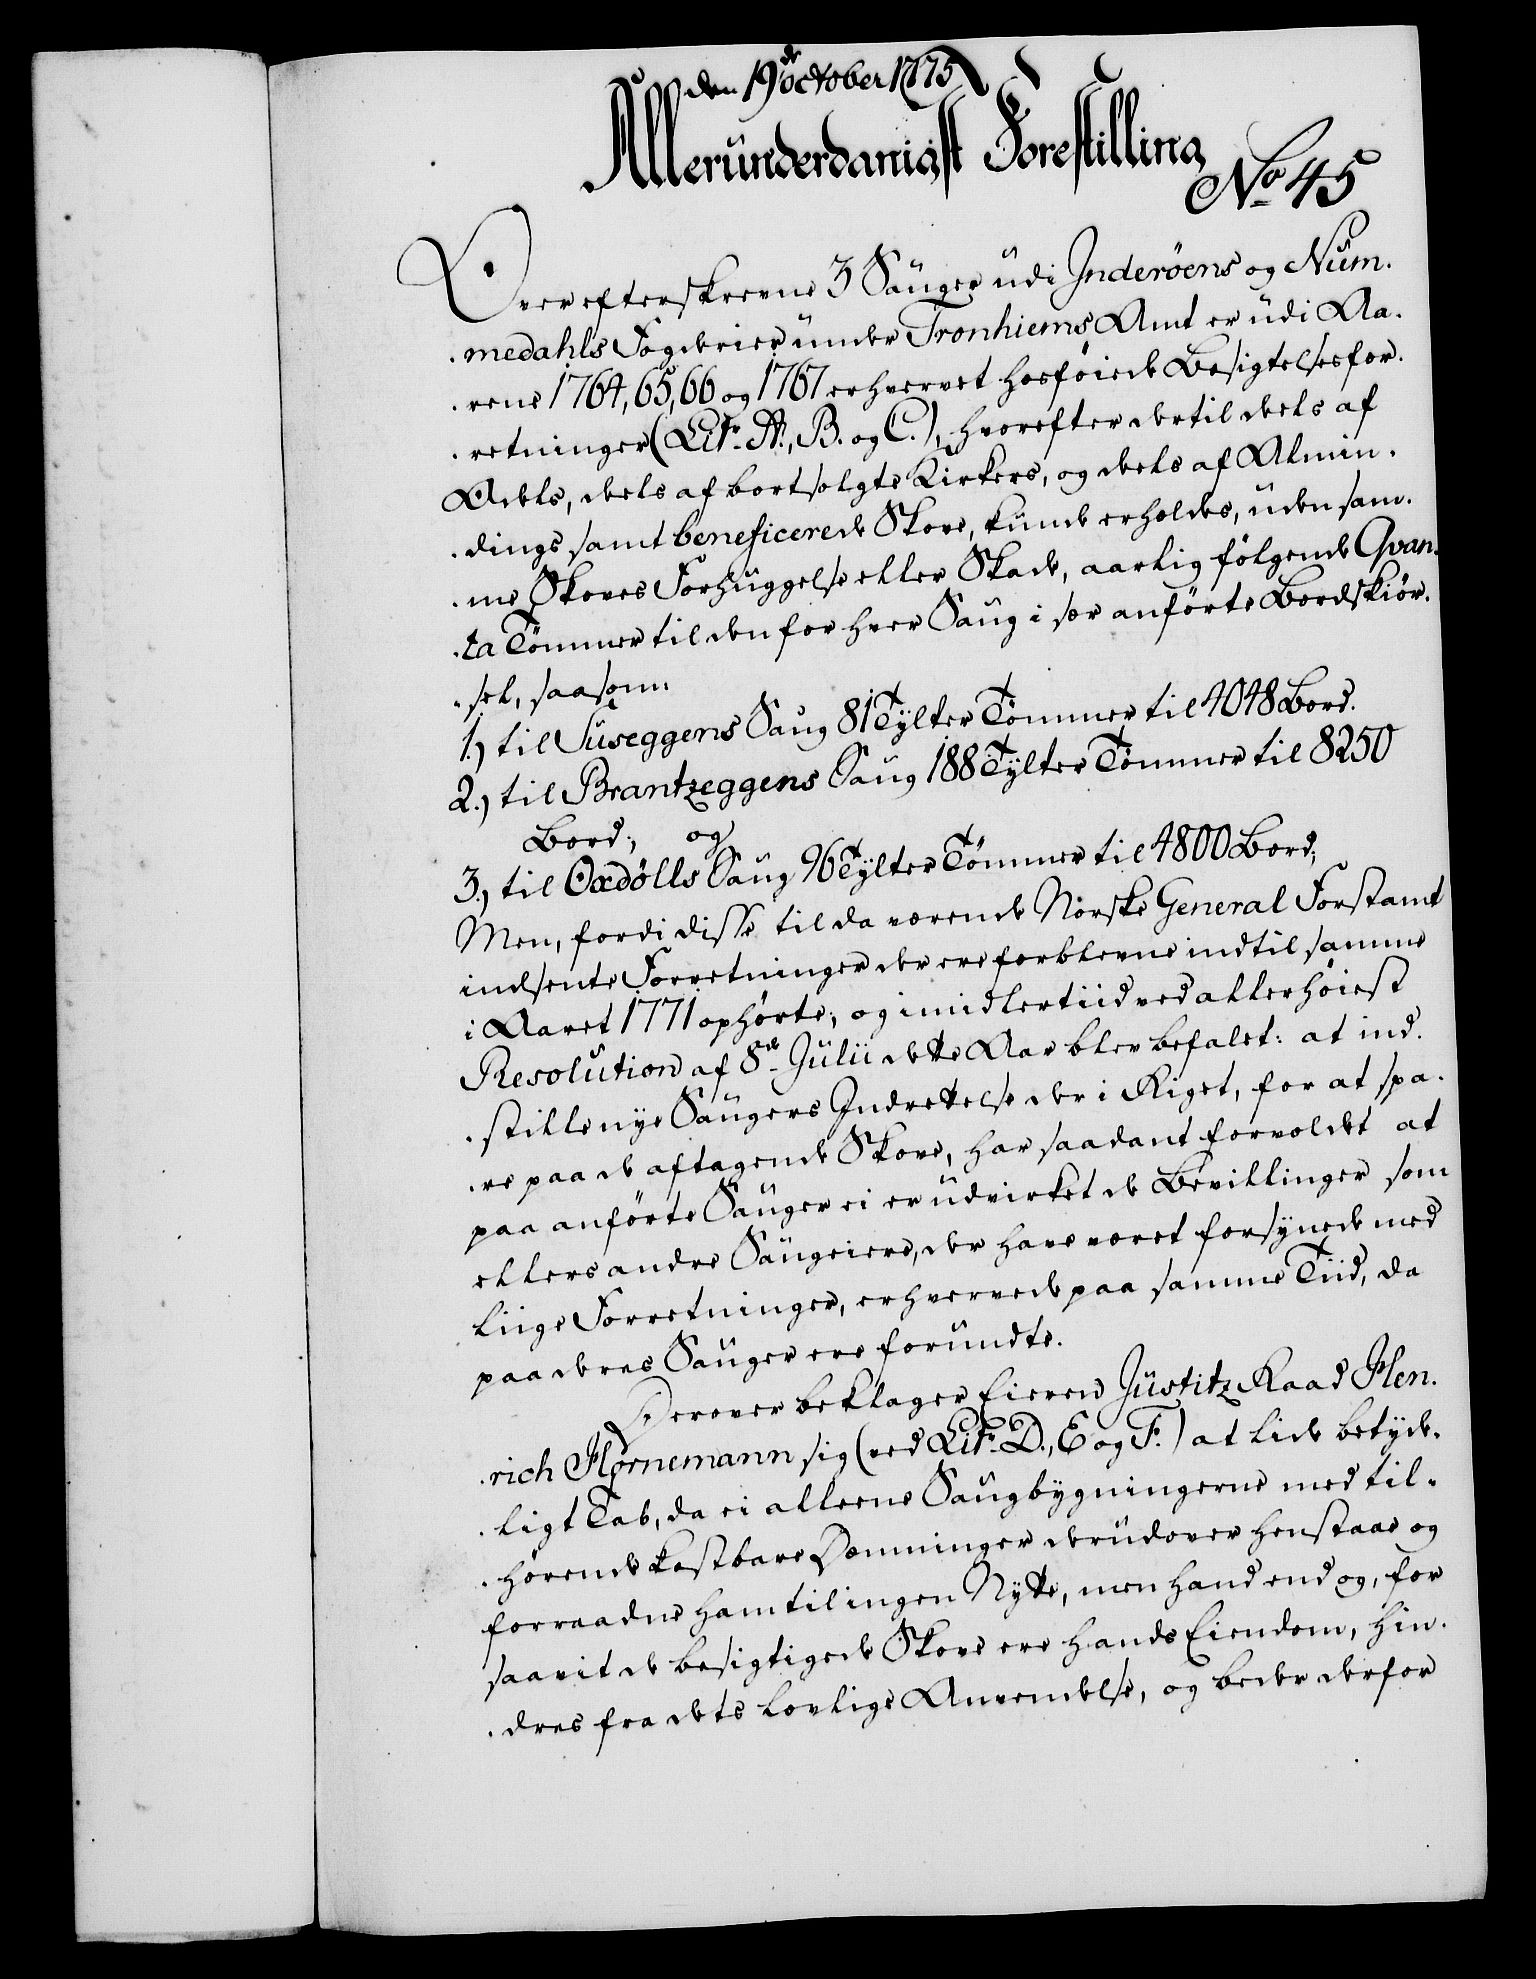 den 19de October 1775
Allerunderdanigst Forestilling
No 45
Over efterskrevne 3 Sauger udi Inderöens og Num-
-medahls Fogderier under Tronhiems Amt er udi Aa-
-rene 1764, 65, 66 og 1767 erhvervet hosføiede Besigtelsesfor-
-retninger (Litr. A., B. og C.), hvorefter dertil deels af
Odels, deels af bortsolgte Kirkers, og deels af Almin-
-dings samt beneficerede Skove, kunde erholdes, uden sam-
-me Skoves Forhuggelse eller Skade, aarlig følgende Qvan-
-ta Tömmer til den for hver Saug i sær anförte Bordskiör-
-sel, saasom:
1.) til Suseggens Saug 81 Tylter Tömmer til 4048 Bord.
2.) til Brantzeggens Saug 188 Tylter Tömmer til 8250
Bord; og
3.) til Oxdölls Saug 96 Tylter Tömmer til 4800 Bord;
Men, fordi disse til da værende Norske General Forstamt
indsendte Forretninger der ere forblevne indtil samme
i Aaret 1771 ophørte; og imidlertiid ved allerhöiest
Resolution af 8de Julii dette Aar blev befalet: at ind-
-stille nye Saugers Indrettelse der i Riget, for at spa-
-re paa de aftagende Skove, har saadant forvoldet at
paa anførte Sauger ei er udvirket de Bevillinger som
ellers andre Saugeiere, der have været forsynede med
liige Forretninger, erhvervede paa samme Tiid, da
paa deres Sauger ere forundte.
Derover beklager Eieren Justitz Raad Hen-
-rich Hornemann sig (ved Litr. D., E og F.) at lide betyde-
-ligt Tab, da ei alleene Saugbygningerne med til-
-hørende kostbare Dæmninger derudover henstaae og
forraadne ham til ingen Nytte, men hand end og, for
saavit de besigtigede Skove ere hands Eiendom, hin-
-dres fra dets lovlige Anvendelse, og beder derfor